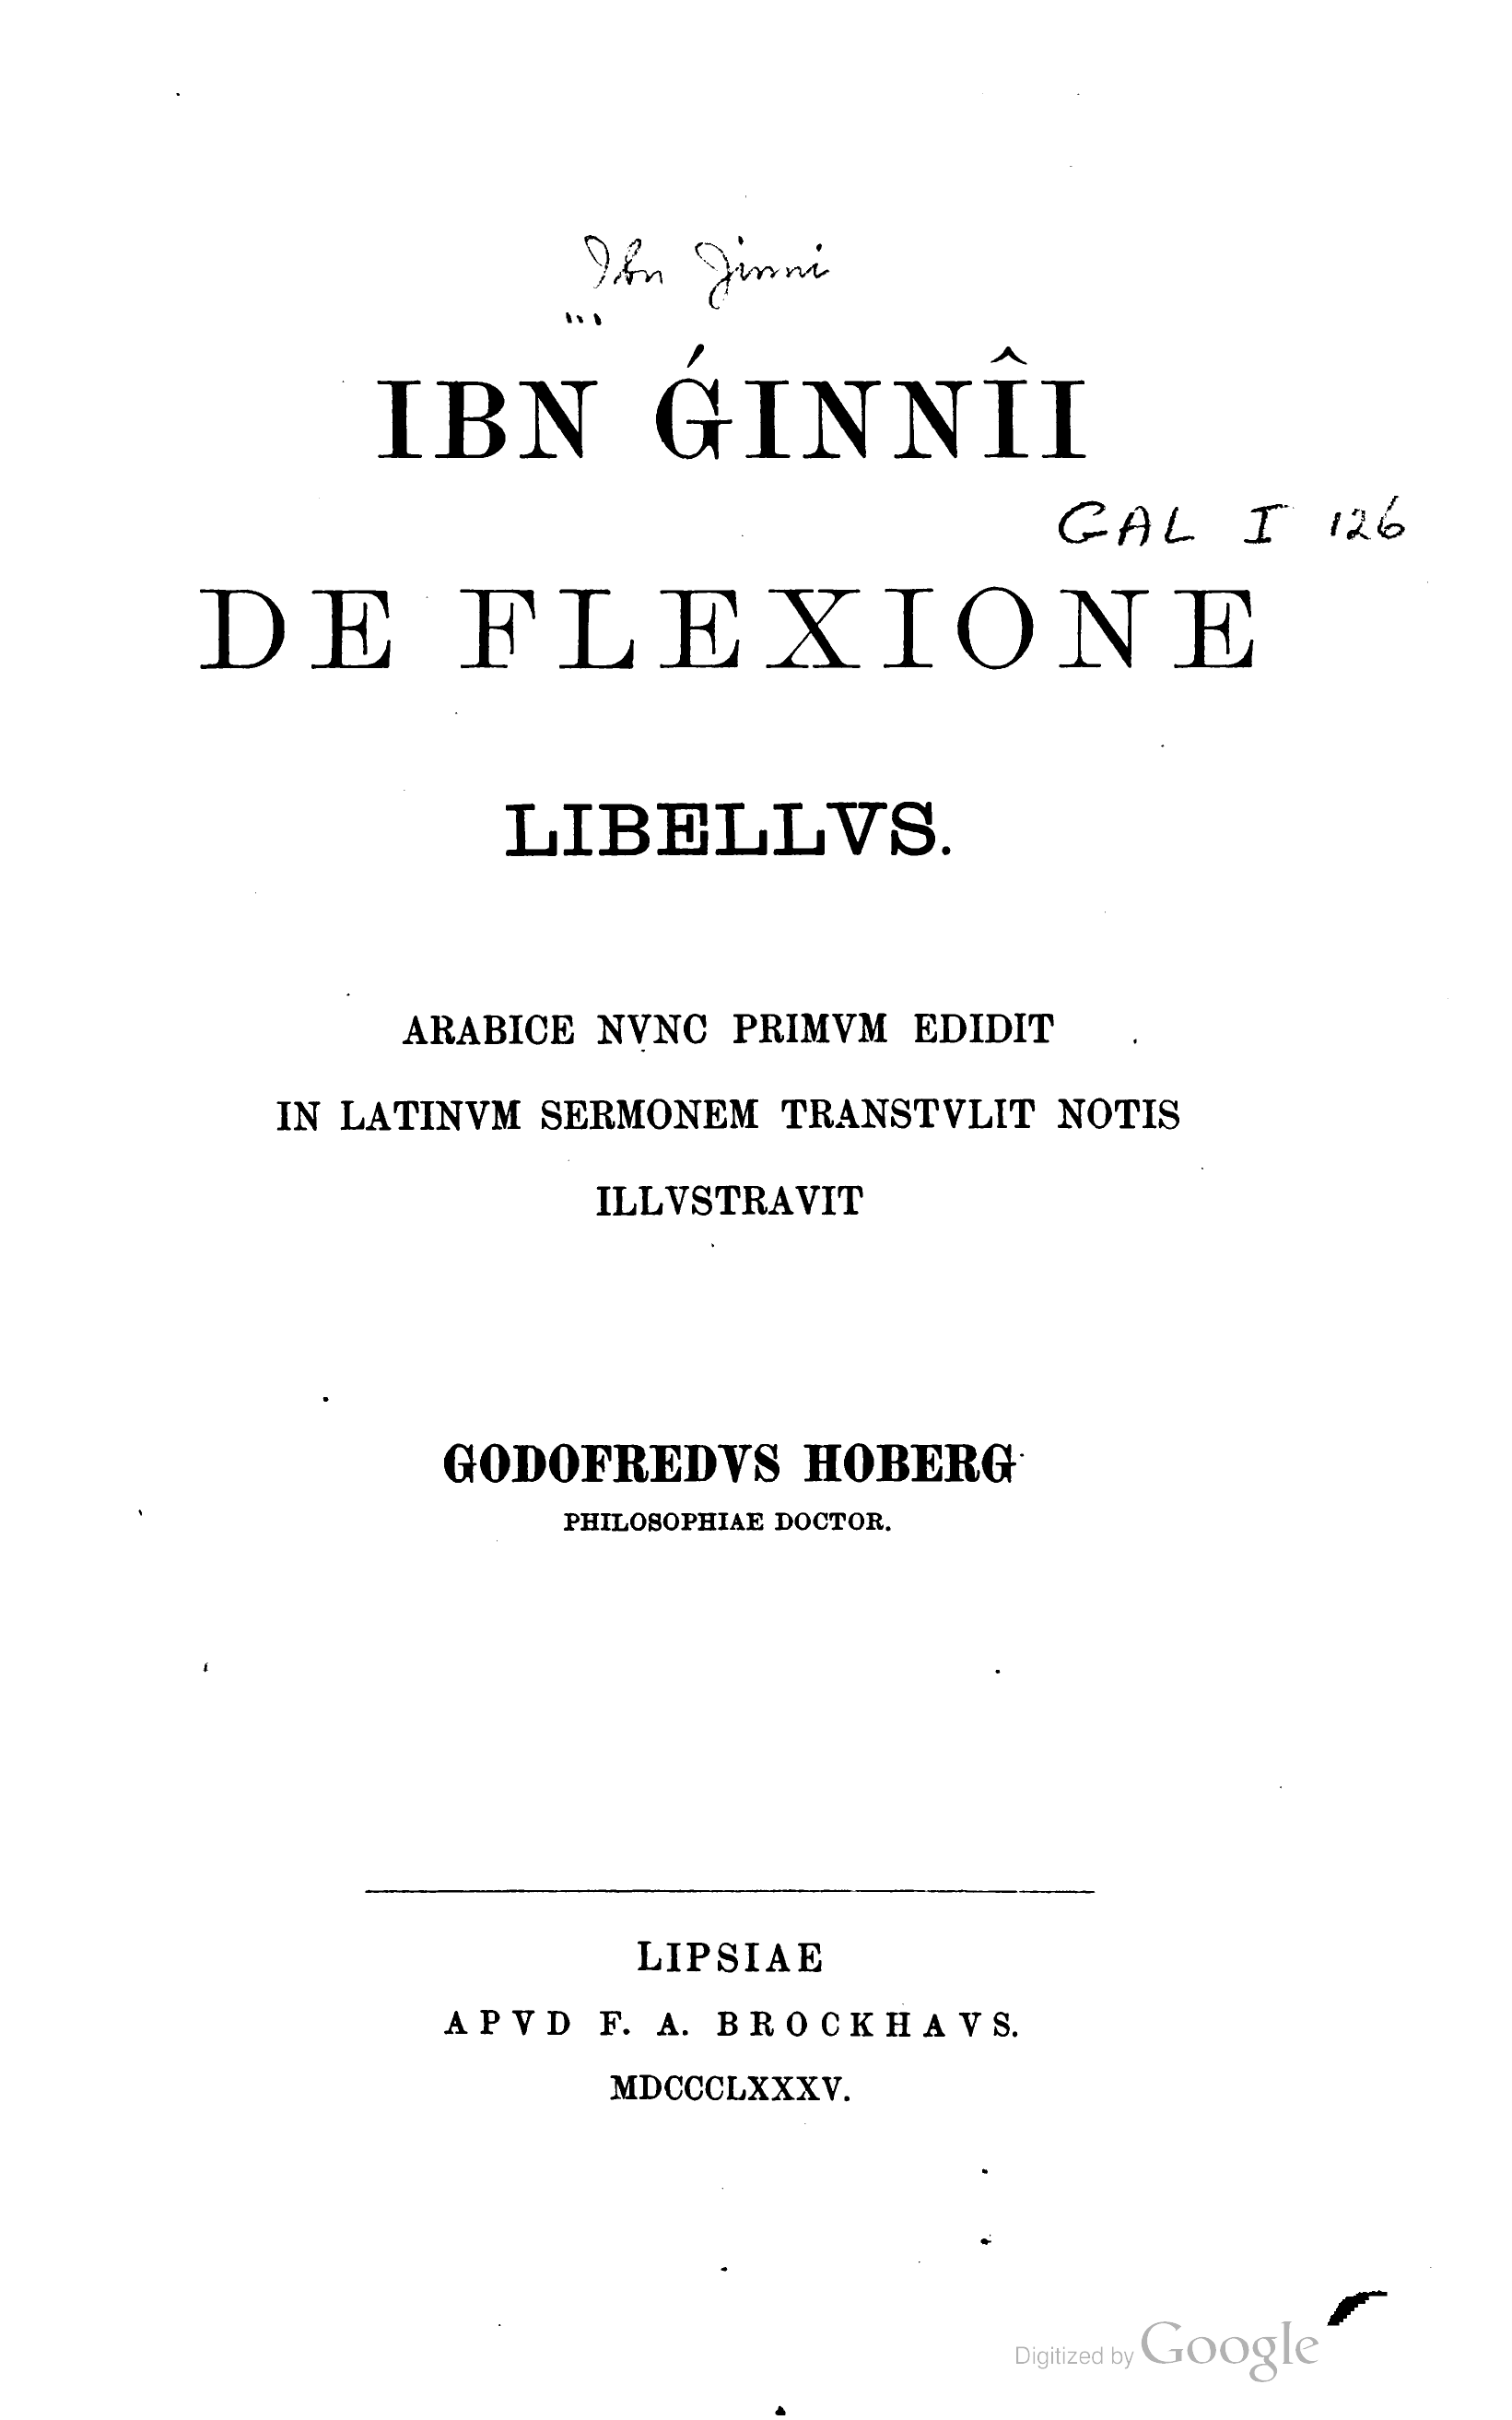 Ibn Jinni
IBN ǴINNÎI
GAL I 126
DE FLEXIONE
LIBELLVS.
ARABICE NVNC PRIMVM EDIDIT
IN LATINVM SERMONEM TRANSTVLIT NOTIS
ILLVSTRAVIT
GODOFREDVS HOBERG
PHILOSOPHIAE DOCTOR.
LIPSIAE
APVD F. A. BROCKHAVS.
MDCCCLXXXV.
Digitized by Google